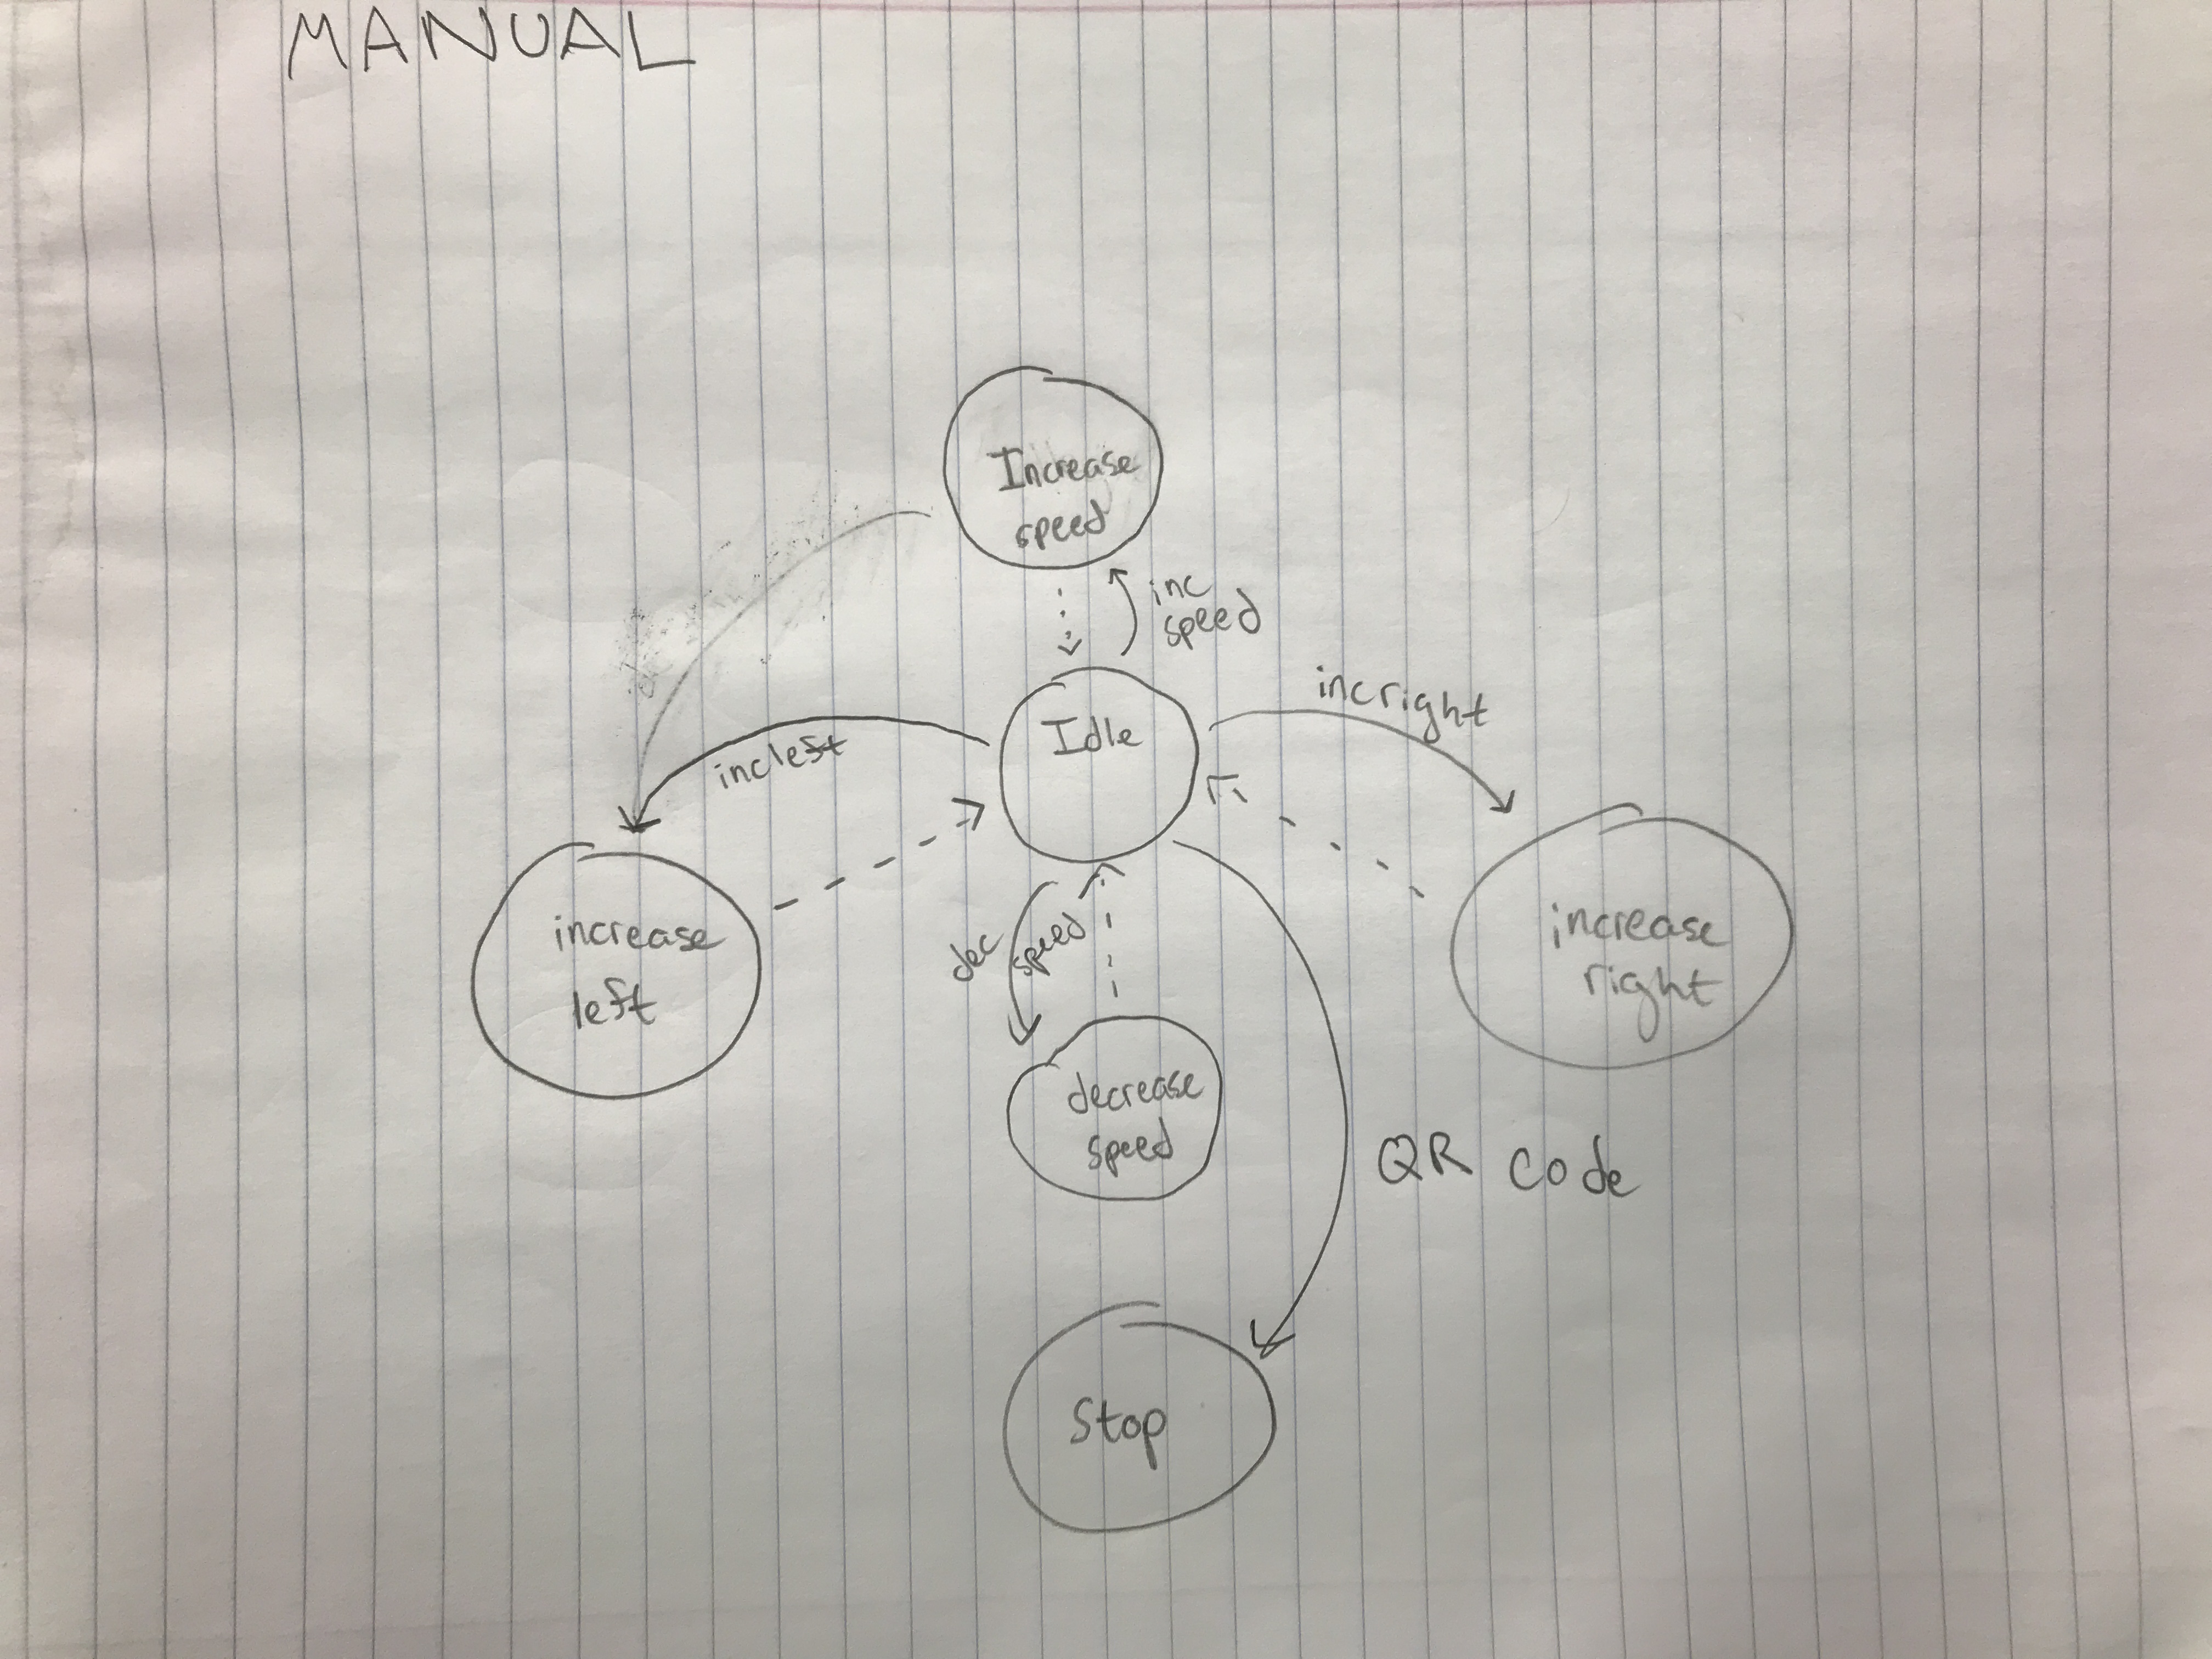 MANUAL
Increase
speed
inc
speed
Idle
incleft
incright
increase
left
dec speed
increase
right
decrease
speed
QR Code
Stop